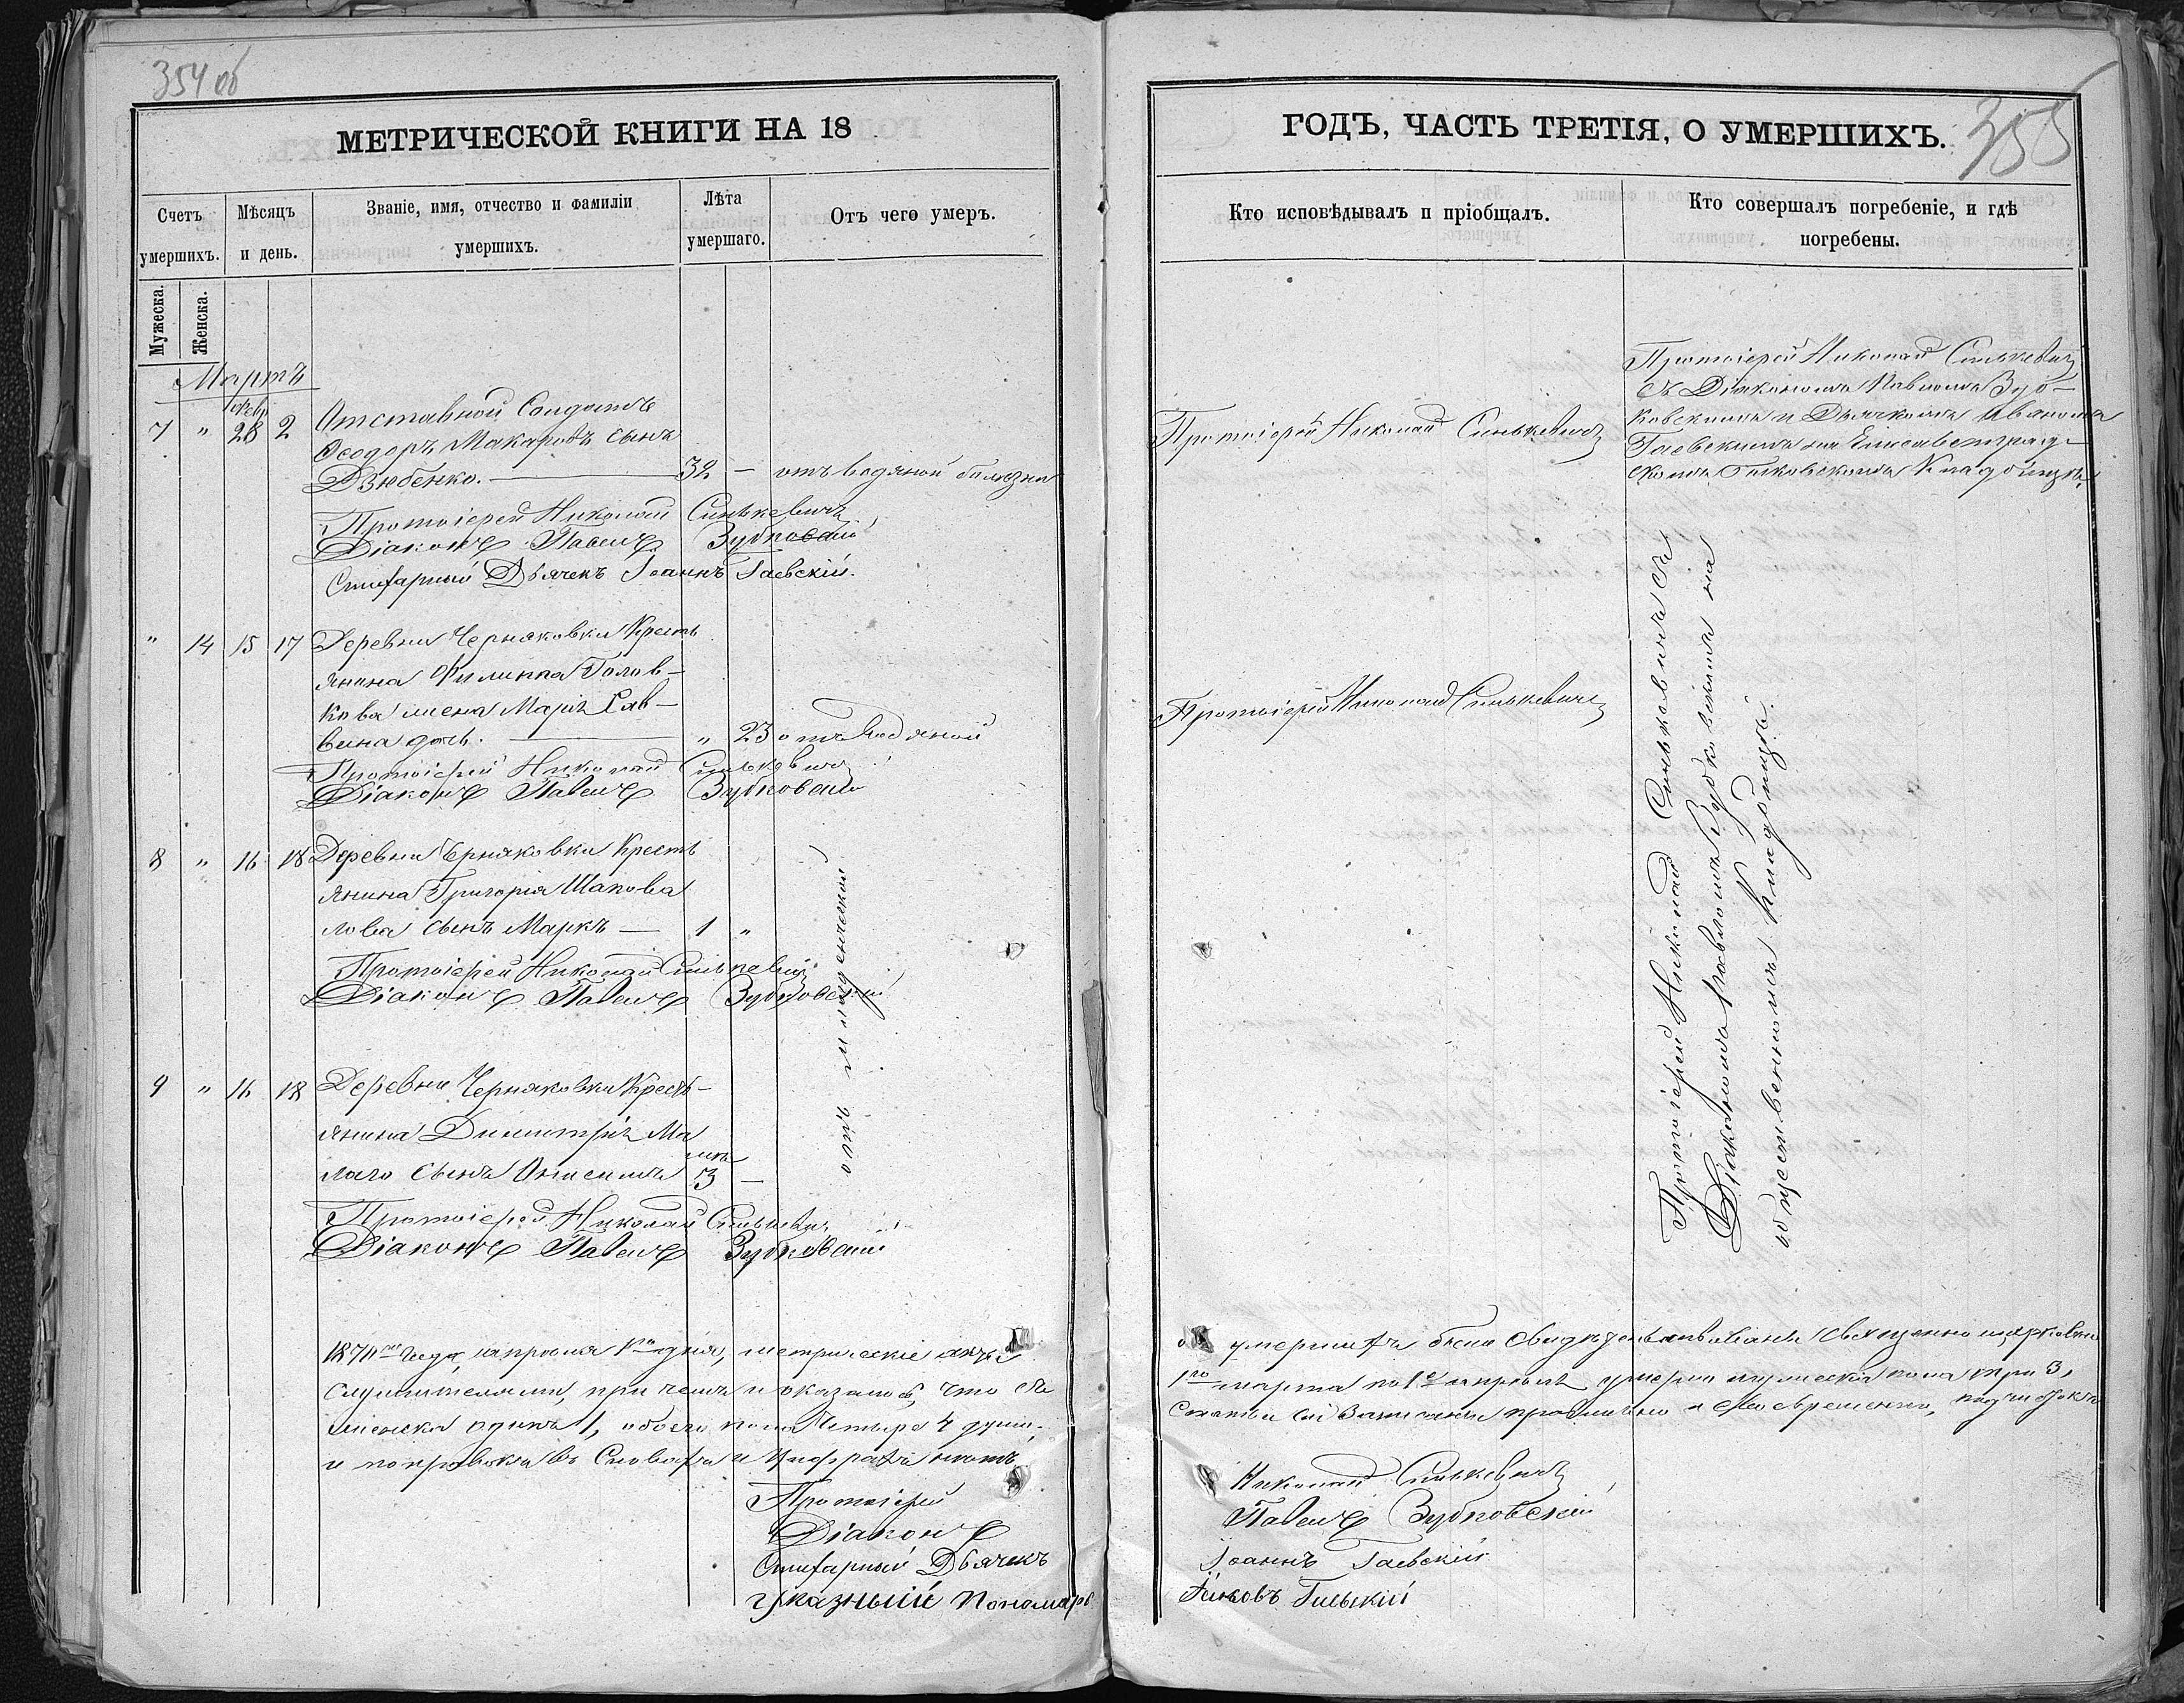 354 об
МЕТРИЧЕСКОЙ КНИГИ НА 18
Счетъ умершихъ.
Мѣсяцъ и день.
Званіе, имя, отчество и фамиліи умершихъ.
Лѣта умершаго.
Отъ чего умеръ.
Мужеска.
Женска.
Мартъ
февр
7 " 28 2 Отставной Солдатъ
Ѳеодоръ Макаровъ сынъ
Дзюбенко. — 32 — отъ водяной болезни
Протоіерей Николай Синькевичъ
Діаконъ Павелъ Зубковскій
Стихарный Дьячекъ Іоаннъ Гаевскій.
" 14 15 17 Деревни Черняковки Кресть
янина Филиппа Голов-
кова жена Марія Сав-
вина дочь. — " 23 отъ водяной
Протоіерей Николай Синькевичъ
Діаконъ Павелъ Зубковскій
8 " 16 18 Деревни Черняковки Кресть
янина Григорія Шапова
лова сынъ Маркъ — 1 "
Протоіерей Николай Синькевичъ
Діаконъ Павелъ Зубковскій
9 " 16 18 Деревни Черняковки Кресть-
янина Димитрія Ма
лаго сынъ Онисимъ 3 —
отъ младенческой
Протоіерей Николай Синькевичъ
Діаконъ Павелъ Зубковскій
1874го года, апрѣля 1го дня, метрическіе акты
Служителями, при чемъ и оказалось, что съ
женска одинъ 1, обоего пола Четыре 4 души,
и поправокъ въ Словахъ и Цифрахъ нѣтъ
Протоіерей
Діаконъ
Стихарный Дьячекъ
Указный Пономарь
ГОДЪ, ЧАСТЬ ТРЕТІЯ, О УМЕРШИХЪ.
355
Кто исповѣдывалъ и пріобщалъ.
Кто совершалъ погребеніе, и гдѣ погребены.
Протоіерей Николай Синькевичъ
Протоіерей Николай Синькевичъ
съ Діакономъ Павломъ Зуб-
ковскимъ и Дьячкомъ Иваномъ
Гаевскимъ на Елисаветград-
скомъ Кладбищѣ
Протоіерей Николай Синькевичъ
Протоіерей Николай Синькевичъ съ
Діакономъ Павломъ Зубковскимъ на
общественномъ Кладбищѣ.
о умершихъ были свидѣтельствованы Священно церковно
1го марта по 1е апрѣля умерло мужеска пола три 3,
Статьи сіи Записаны правильно и Своевременно, подчистокъ
Николай Синькевичъ
Павелъ Зубковскій
Іоаннъ Гаевскій